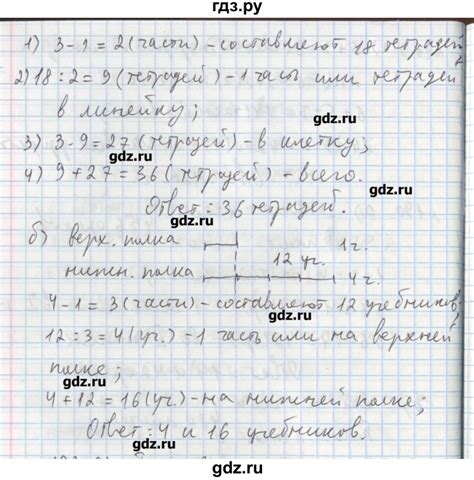 гдз.ру
1) 3-1=2(части)-составляют 18 тетрадей
2) 18:2=9(тетрадей)-1 часть или тетрадей
в линейку;
gdz.ru
gdz.ru
3) 3·9=27(тетрадей)-в клетку;
gdz.ru
4) 9+27=36(тетрадей)-всего.
gdz.ru
Ответ: 36 тетрадей.
gdz.ru
б) верх. полка 1 ч.
gdz.ru
12 уч.
нижн. полка 4 ч.
gdz.ru
4-1=3(части)-составляют 12 учебников;
gdz.ru
12:3=4(уч.)-1 часть или на верхней
полке;
gdz.ru
gdz.ru
4+12=16(уч)-на нижней полке;
gdz.ru
Ответ: 4 и 16 учебников.
gdz.ru